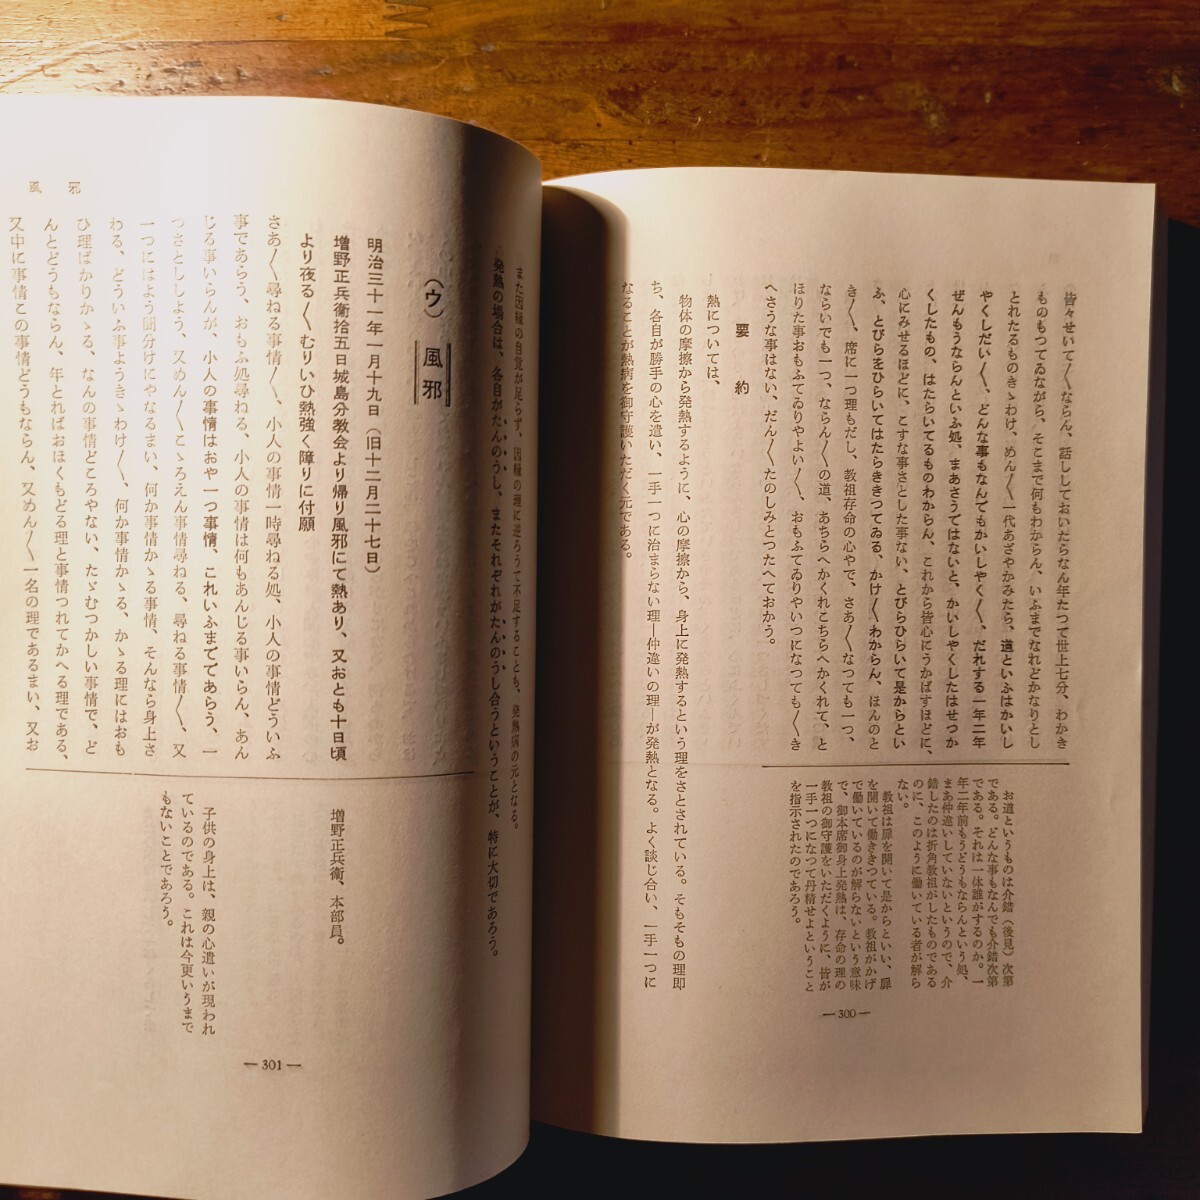 皆々せいて〳〵ならん、話ししておいたらなん年たつて世上七分、わかき
ものもつてゐながら、そこまで何もわからん、いふまでなれどかなりとし
とれたるものきゝわけ、めん〳〵一代あざやかみたら、道といふはかいし
やくしだい〳〵、どんな事もなんでもかいしやく〳〵、だれする一年二年
ぜんもうならんといふ処、まあさうではないと、かいしやくしたはせつか
くしたもの、はたらいてるものわからん、これから皆心にうかばすほどに、
心にみせるほどに、こすな事さとした事ない、とびらひらいて是からとい
ふ、とびらをひらいてはたらききつてゐる、かけ〳〵わからん、ほんのと
き〳〵、席に一つ理もだし、教祖存命の心やで、さあ〳〵なつても一つ、
ならいでも一つ、ならん〳〵の道、あちらへかくれこちらへかくれて、と
ほりた事おもふてゐりやよい〳〵、おもふてゐりやいつになつても〳〵き
へさうな事はない、だん〳〵たのしみとつたへておかう。
お道というものは介錯（後見）次第
である。どんな事もなんでも介錯次第
である。それは一体誰がするのか。一
年二年前もうどうもならんという処、
まあ仲違いしていないというので、介
錯したのは折角教祖がしたものである
のに、このように働いている者が解ら
ない。
教祖は扉を開いて是からといい、扉
を開いて働ききつている。教祖がかげ
で働いているのが解らないという意味
で、御本席御身上発熱は、存命の理の
教祖の御守護をいただくように、皆が
一手一つになつて丹精せよということ
を指示されたのであろう。
要約
熱については、
物体の摩擦から発熱するように、心の摩擦から、身上に発熱するという理をさとされている。そもそもの理即
ち、各自が勝手の心を遣い、一手一つに治まらない理―仲違いの理―が発熱となる。よく談じ合い、一手一つに
なることが熱病を御守護いただく元である。
― 300 ―
また因縁の自覚が足らず、因縁の理に逆らうて不足することも、発熱病の元となる。
発熱の場合は、各自がたんのうし、またそれぞれがたんのうし合うということが、特に大切であろう。
（ウ）風邪
明治三十一年一月十九日（旧十二月二十七日）
増野正兵衛拾五日城島分教会より帰り風邪にて熱あり、又おとも十日頃
より夜る〳〵むりいひ熱強く障りに付願
さあ〳〵尋ねる事情〳〵、小人の事情一時尋ねる処、小人の事情どういふ
事であらう、おもふ処尋ねる、小人の事情は何もあんじる事いらん、あん
じる事いらんが、小人の事情はおや一つ事情、これいふまでであらう、一
つさとししよう、又めん〳〵こゝろえん事情尋ねる、尋ねる事情〳〵、又
一つにはよう聞分けにやなるまい、何か事情かゝる事情、そんなら身上さ
わる、どういふ事ようきゝわけ〳〵、何か事情かゝる、かゝる理にはおも
ひ理ばかりかゝる、なんの事情どころやない、たゞむつかしい事情で、ど
んとどうもならん、年とればおほくもどる理と事情つれてかへる理である、
又中に事情この事情どうもならん、又めん〳〵一名の理であるまい、又お
増野正兵衛、本部員。
子供の身上は、親の心遣いが現われ
ているのである。これは今更いうまで
もないことであろう。
風邪
― 301 ―